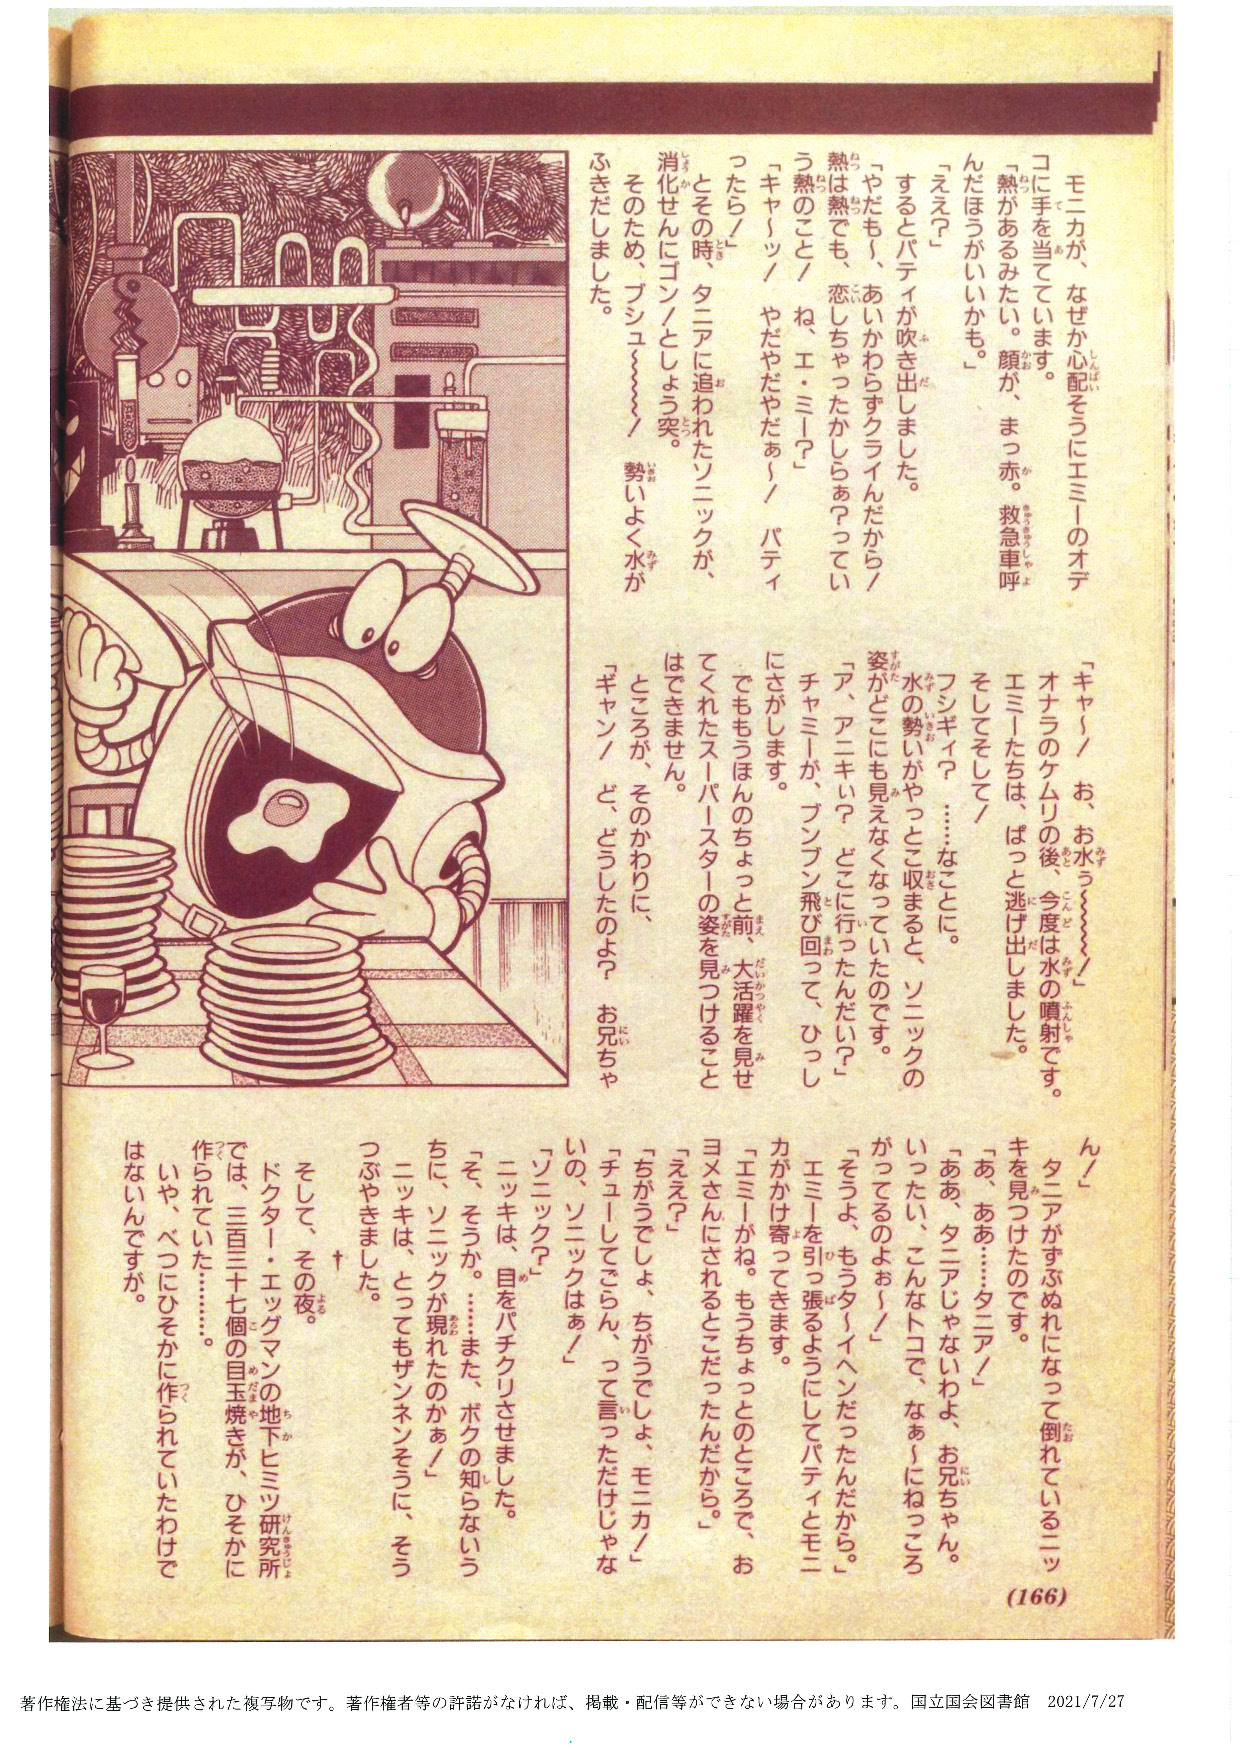 モニカが、なぜか心配そうにエミーのオデ
コに手を当てています。
「熱があるみたい。顔が、まっ赤。救急車呼
んだほうがいいかも。」
「ええ？」
するとパティが吹き出しました。
「やだも〜、あいかわらずクライんだから！
熱は熱でも、恋しちゃったかしらぁ？ってい
う熱のこと！　ね、エ・ミー？」
「キャ〜ッ！　やだやだやだぁ〜！　パティ
ったら！」
とその時、タニアに追われたソニックが、
消化せんにゴン！としょう突。
そのため、ブシュ〜〜〜〜！　勢いよく水が
ふきだしました。
「キャ〜！　お、お水ぅ〜〜〜〜！」
オナラのケムリの後、今度は水の噴射です。
エミーたちは、ぱっと逃げ出しました。
そしてそして！
フシギィ？　……なことに。
水の勢いがやっとこ収まると、ソニックの
姿がどこにも見えなくなっていたのです。
「ア、アニキぃ？　どこに行ったんだい？」
チャミーが、ブンブン飛び回って、ひっし
にさがします。
でももうほんのちょっと前、大活躍を見せ
てくれたスーパースターの姿を見つけること
はできません。
ところが、そのかわりに、
「ギャン！　ど、どうしたのよ？　お兄ちゃ
ん！」
タニアがずぶぬれになって倒れているニッ
キを見つけたのです。
「あ、ああ……タニア！」
「ああ、タニアじゃないわよ、お兄ちゃん。
いったい、こんなトコで、なぁ〜にねっころ
がってるのよぉ〜！」
「そうよ、もうタ〜イヘンだったんだから。」
エミーを引っ張るようにしてパティとモニ
カがかけ寄ってきます。
「エミーがね。もうちょっとのところで、お
ヨメさんにされるとこだったんだから。」
「ええ？」
「ちがうでしょ、ちがうでしょ、モニカ！」
「チューしてごらん、って言っただけじゃな
いの、ソニックはぁ！」
「ソニック？」
ニッキは、目をパチクリさせました。
「そ、そうか。……また、ボクの知らないう
ちに、ソニックが現れたのかぁ！」
ニッキは、とってもザンネンそうに、そう
つぶやきました。
†
そして、その夜。
ドクター・エッグマンの地下ヒミツ研究所
では、三百三十七個の目玉焼きが、ひそかに
作られていた…………。
いや、べつにひそかに作られていたわけで
はないんですが。
(166)
著作権法に基づき提供された複写物です。著作権者等の許諾がなければ、掲載・配信等ができない場合があります。国立国会図書館　2021/7/27